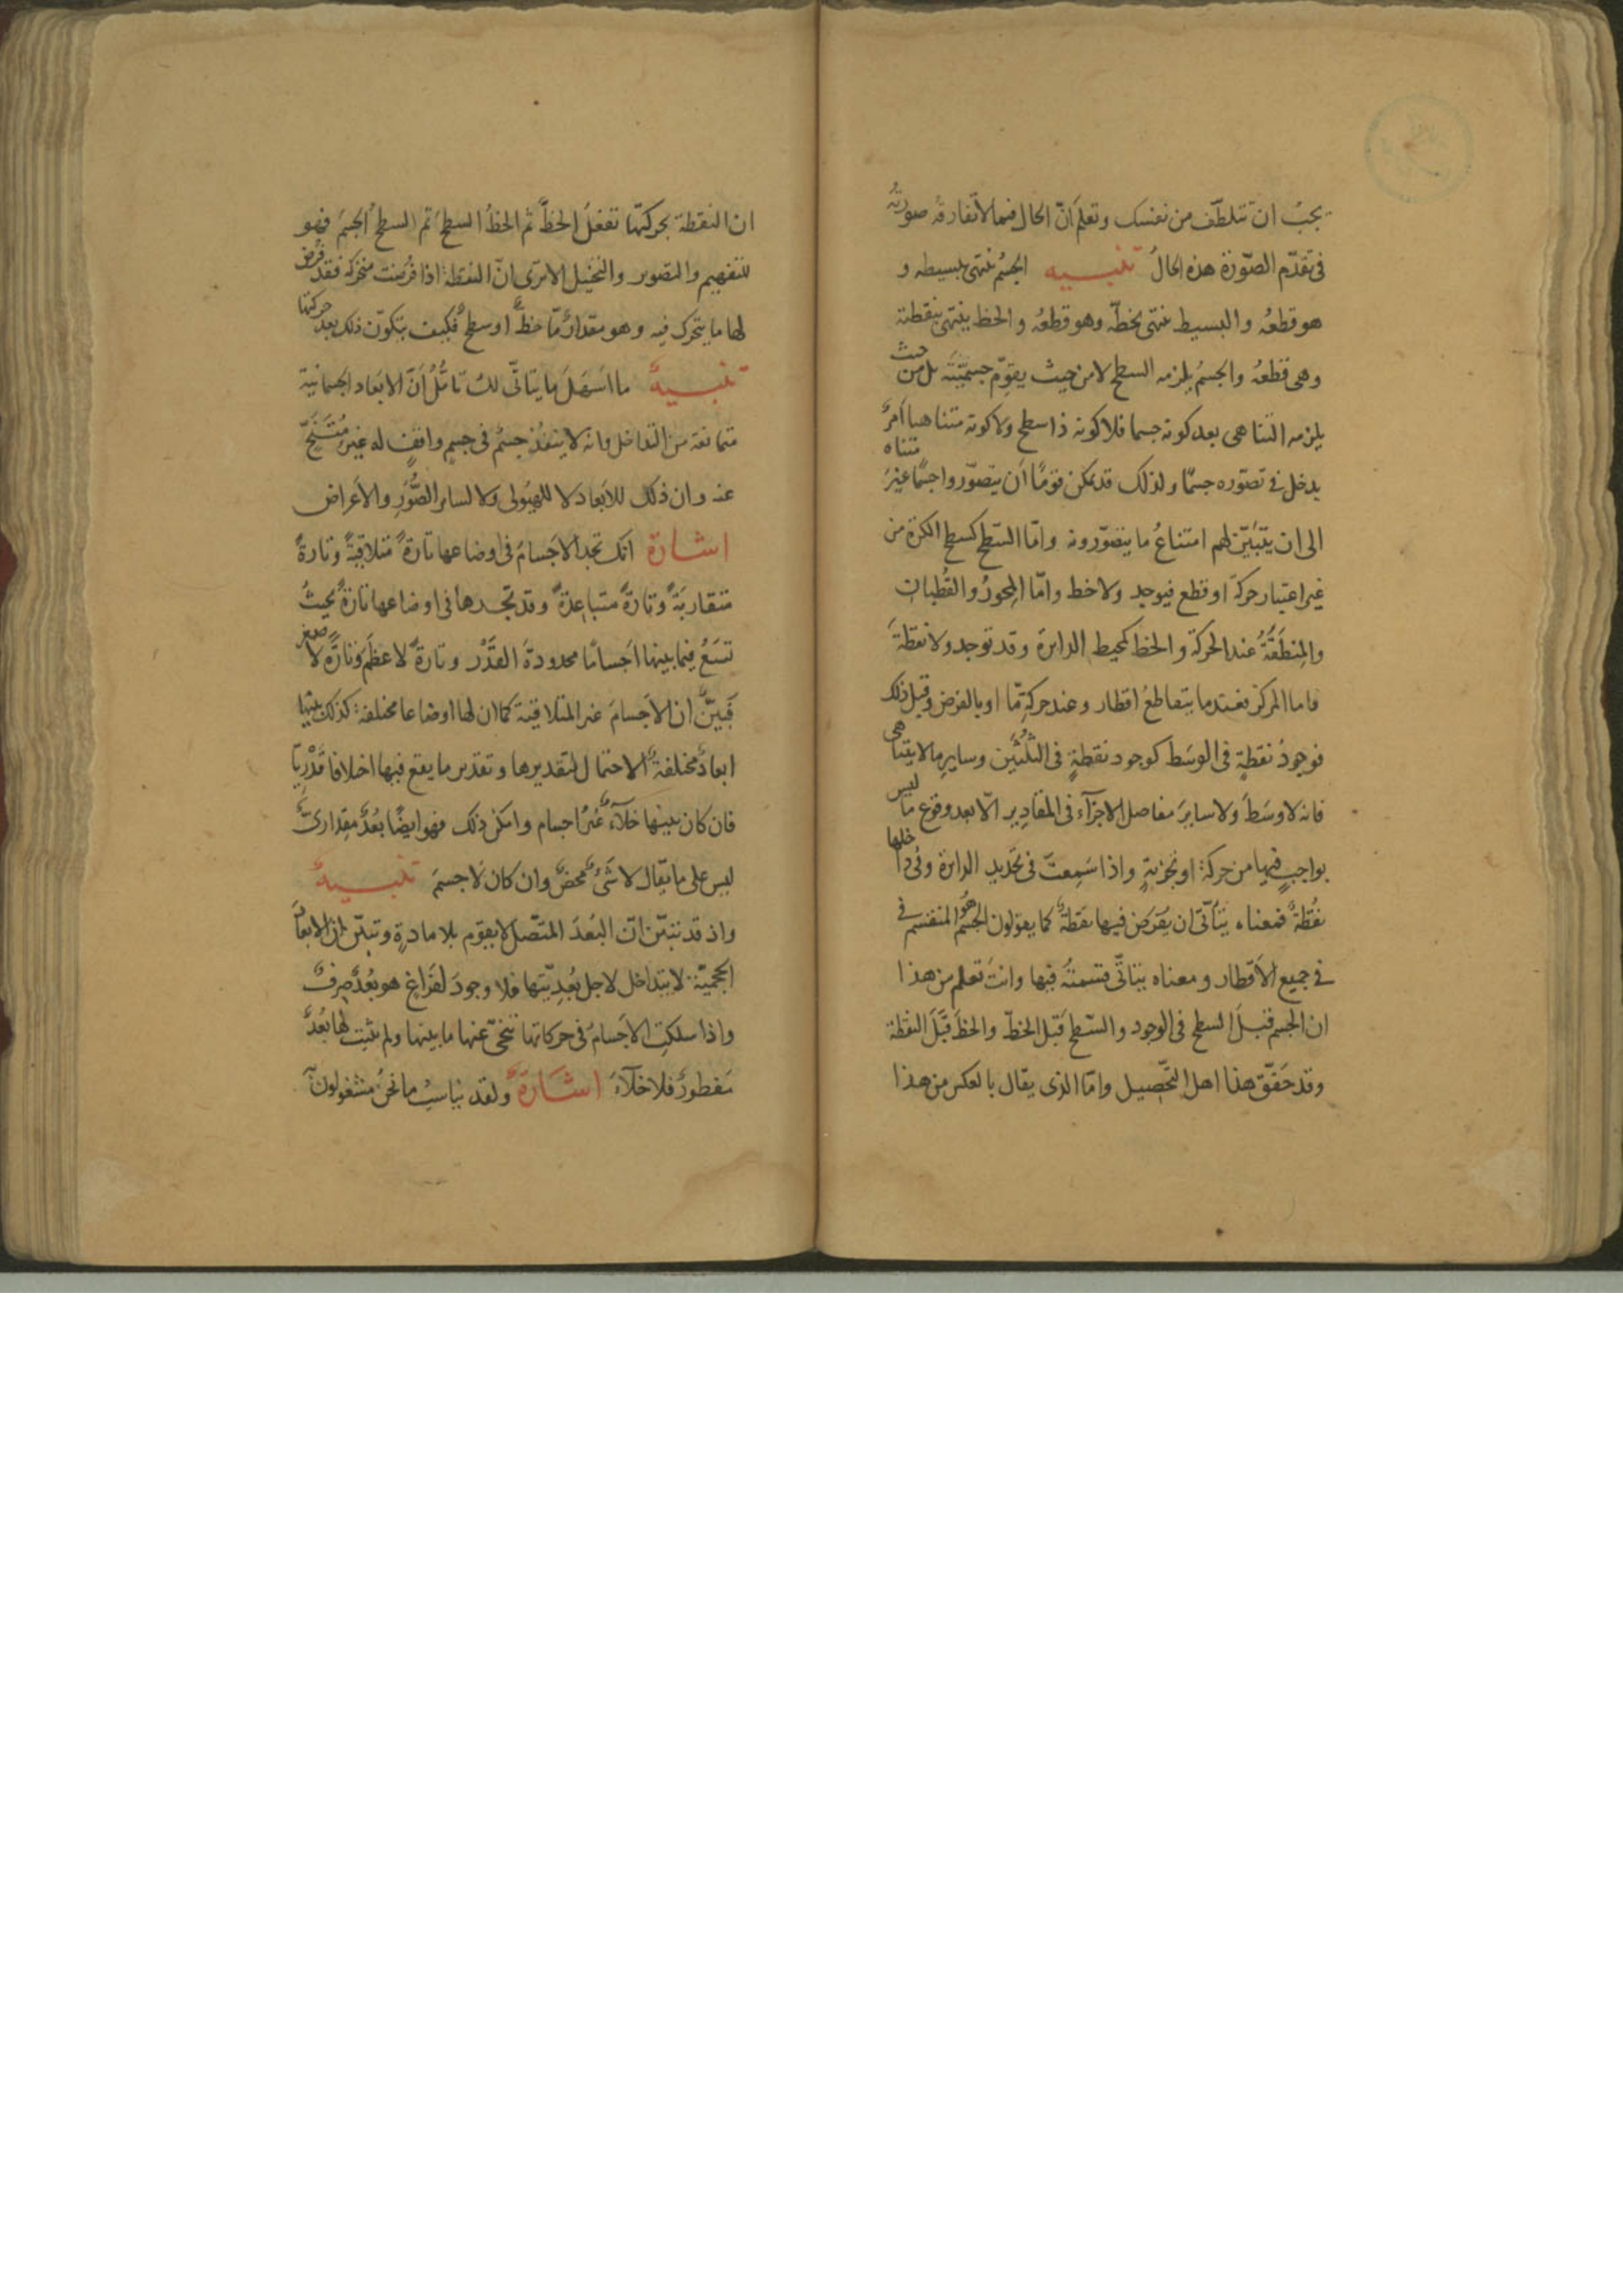 يجبُ ان تتلطّف من نفسك وتعلمَ انّ الحال فيما لا تفارقه صورتُه
فى تقدّم الصّورة هذه الحالُ تنبيه الجسمُ ينتهى ببسيطه و
هو قطعُه والبسيط ينتهى بخطّه وهو قطعُه والخط ينتهى بنقطته
وهى قطعُه والجسمُ يلزمه السطح لا من حيث يقوّم جسميّته بل من حيث
يلزمه التناهى بعد كونه جسما فلا كونه ذا سطح ولا كونه متناهيا امرٌ
يدخل فى تصوّره جسمًا ولذلك قد يمكن قومًا أن يتصوّروا جسمًا غيرَ متناه
الى ان يتبيّن لهم امتناعُ ما يتصوّرونه وامّا السّطح كسطح الكرة من
غير اعتبار حركة او قطع فيوجد ولا خط وامّا المِحورُ والقُطبان
والمِنطَقَةُ عند الحركة والخط كمحيط الدائرة وقد توجد ولا نقطةَ
فاما المركز فعندما يتقاطعُ اقطار وعند حركةٍ مّا او بالفرض وقبل ذلك
فوجودُ نقطةٍ فى الوسَط كوجود نقطةٍ فى الثُّلُثَين وسايرِ ما لا يتناهى
فانه لا وسَطَ ولا سايرَ مفاصل الاجزآء فى المقادير الّا بعد وقوع ما ليس
بواجبٍ فيها من حركة او تجزيةٍ واذا سَمِعتَ فى تحديد الدائرة وفى داخلها
نقُطةٌ فمعناه يتأتّى ان يُفرَض فيها نقطةٌ كما يقولون الجسمُ هو المنقسم فى
فى جميع الأقطار ومعناه يتأتّى قسمتُه فيها وانتَ تعلم من هذا
ان الجسم قبلَ السطح فى الوجود والسّطح قبل الخطّ والخط قَبلَ النقطة
وقد حَقّق هذا اهل التّحصيل وامّا الذى يقال بالعكس من هذا
ان النقطة بحركتها تفعلُ الخطَّ ثم الخطُّ السطحَ ثم السطحُ الجسمَ فهو
للتفهيم والتصوير والتخييل الا ترى انّ النقطة اذا فُرضت متحركة فقد فُرض
لها ما يتحرك فيه وهو مقدارٌ مّا خطٌّ او سطحٌ فكيف يتكوّن ذلك بعد حركتها
تنبيهٌ ما اسَهلَ ما يتأتّى لك تأمُّلُ أنّ الابعاد الجسمانية
متمانعة من التداخل وانه لا ينفُذ جسمٌ فى جسمٍ واقفٍ له غيرُ مُتَنَحٍّ
عنه وان ذلك للابعاد لا للهيُولى ولا لساير الصُّوَرِ والاعراض
اشارة انك تجد الاجسامَ فى اوضاعها تارةً متلاقيةً وتارةً
متقاربَةً وتارةً متباعدةً وقد تجدها فى اوضاعها تارةً بحيثُ
تسَعُ فيما بينها اجسامًا محدودةَ القَدْر وتارةً لاعظَمَ وتارةً لاصغر
فَبيّنٌ ان الاجسامَ غير المتلاقية كما ان لها اوضاعا مختلفة كذلك بينها
ابعادٌ مختلفةُ الاحتمال لتقديرها وتقدير ما يقع فيها اختلافا قَدْرِيًّا
فان كان بينها خلآءٌ غيرُ اجسام وامكن ذلك فهو ايضًا بُعدٌ مِقداريٌّ
ليس على ما يقال لا شَىءٌ محضٌ وان كان لا جسمَ تنبيهٌ
واذ قد تبيّن انّ البُعدَ المتّصل لا يقوم بلا مادةٍ وتبيّن ان الابعاد
الحجميّة لا يتداخل لاجل بُعدِيّتها فلا وجودَ لفَراغٍ هو بُعدٌ صِرفٌ
واذا سلكتِ الاجسامُ فى حركاتها تنحّى عنها ما بينها ولم يثبت لها بُعدٌ
مَفطورٌ فلا خلآءَ اشارةٌ ولقد يناسبُ ما نحنُ مشغولون